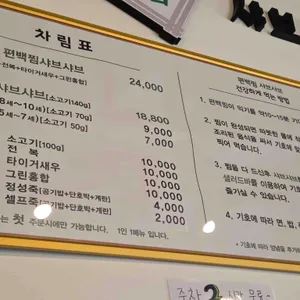 차림표
편백찜샤브샤브
전복+타이거새우+그린홍합 24,000
샤브샤브[소고기140g] 18,800
8세~10세)[소고기 70g] 9,000
5세~7세)[소고기 50g] 7,000
소고기(100g) 10,000
전 복 10,000
타이거새우 10,000
그린홍합 10,000
정성죽(공기밥+단호박+계란) 4,000
셀프죽(공기밥+단호박+계란) 2,000
는 첫 주문시에만 가능합니다. 1인 1메뉴 입니다.
편백찜 샤브샤브
건강하게 먹는 방법
1. 편백찜이 익기를 약 10~15분 기
2. 찜이 완성되면 따뜻한 물에
조리된 음식을 싸서 기호에
찍어 먹습니다.
3. 찜을 다 드신후, 샤브샤브
샐러드바를 이용하여 기
즐기실 수 있습니다.
4. 기호에 따라 면, 밥,
* 기호에 따라 양념을 추가
주차 2시간 무료